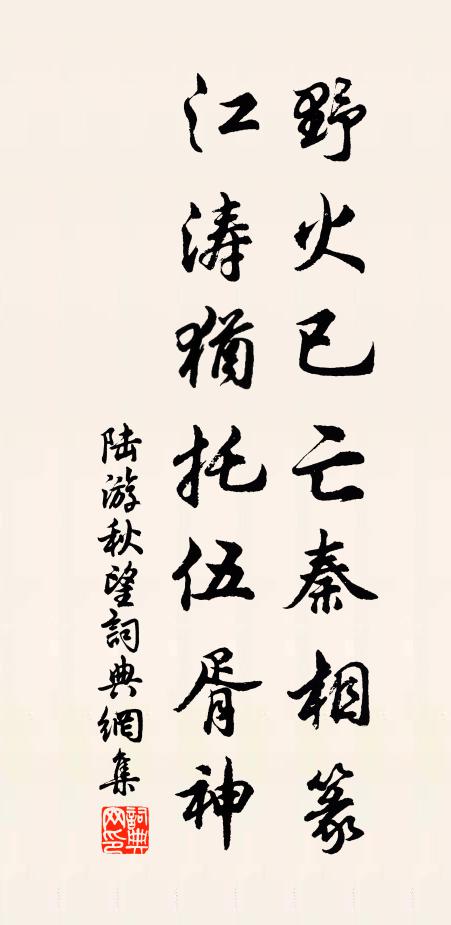 野火已亡秦相篆
江涛猶托伍胥神
陆游秋望詞典網集
詞典网印